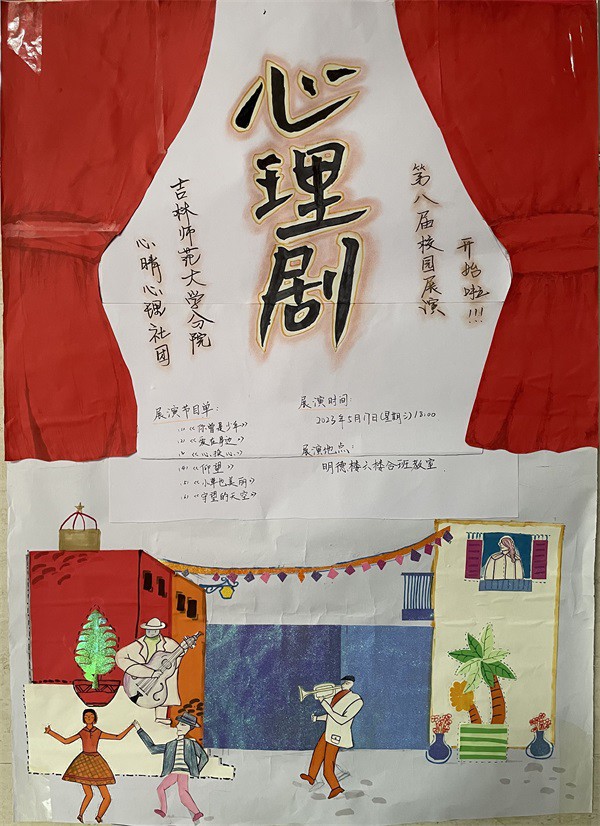 心理剧
第八届校园展演
开始啦!!!
吉林师范大学分院
心晴心理社团
展演节目单:
(1)《你曾是少年》
(2)《爱在身边》
(3)《心换心》
(4)《仰望》
(5)《小草也美丽》
(6)《守望的天空》
展演时间:
2023年5月17日(星期二)18:00
展演地点:
明德楼六楼合班教室